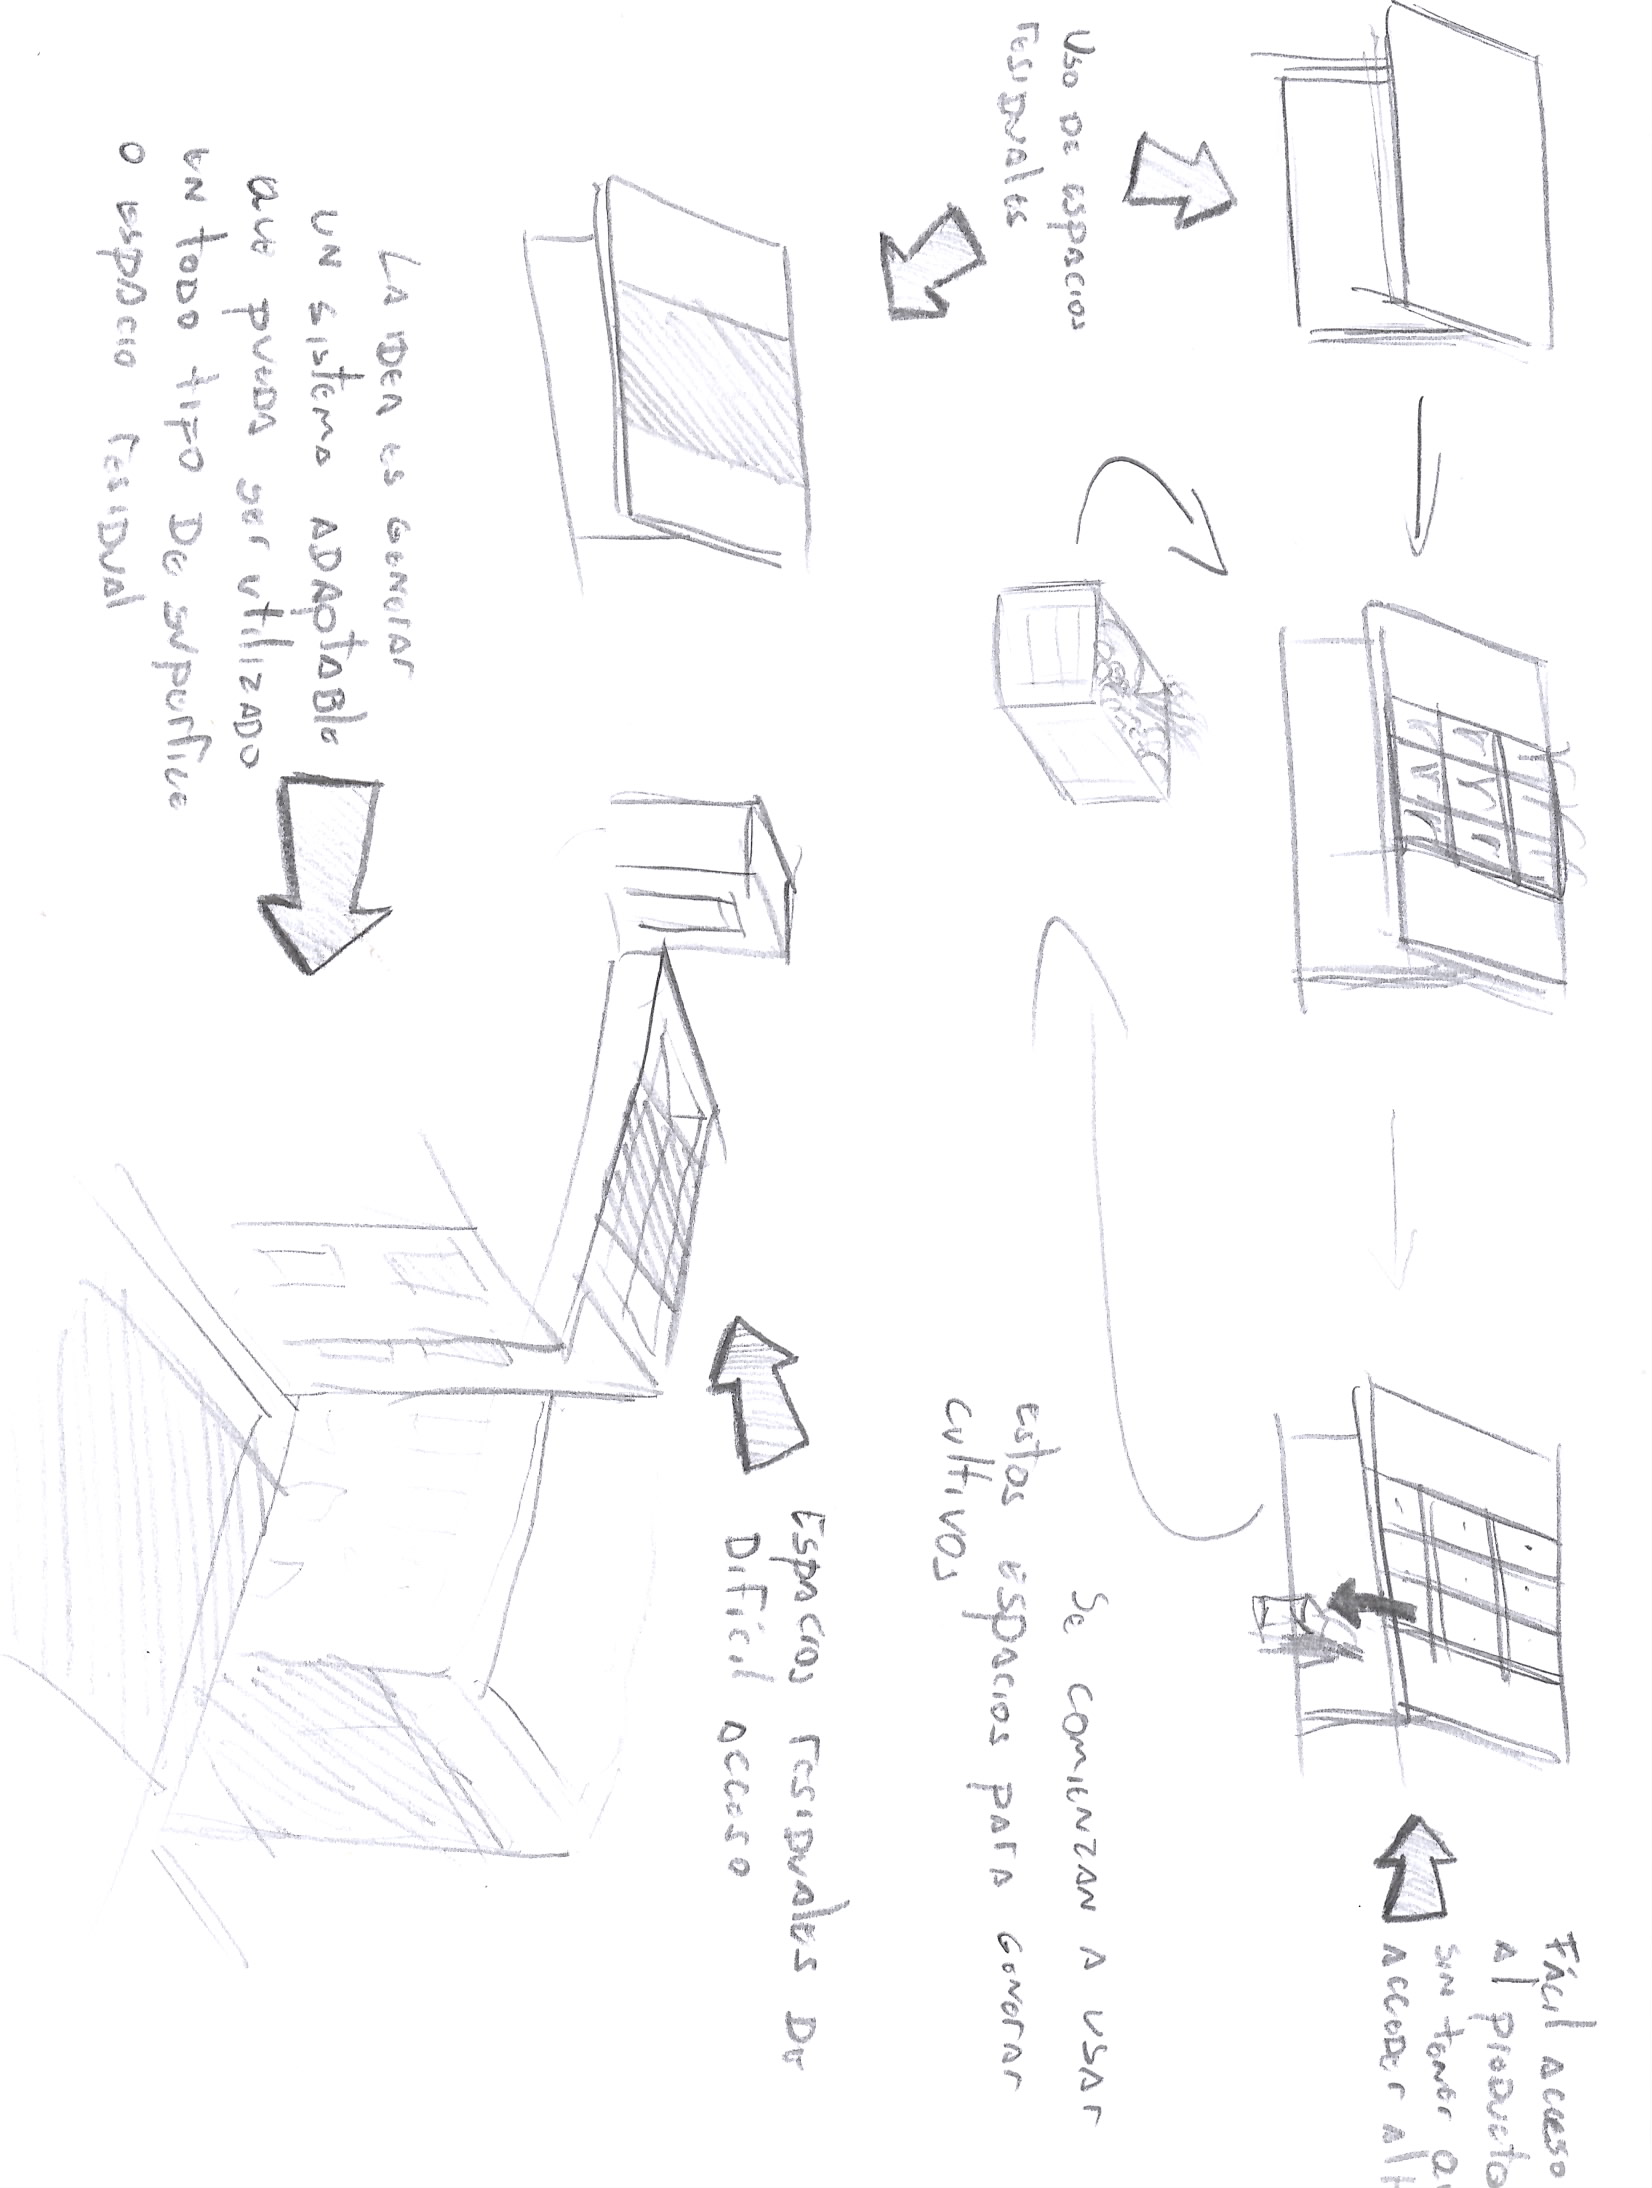 Fácil acceso
al producto
sin tener
acceder
Uso de espacios
residuales
Se comienzan a usar
estos espacios para generar
cultivos
Espacios residuales de
difícil acceso
La idea es generar
un sistema adaptable
que pueda ser utilizado
en todo tipo de superfice
o espacio residual